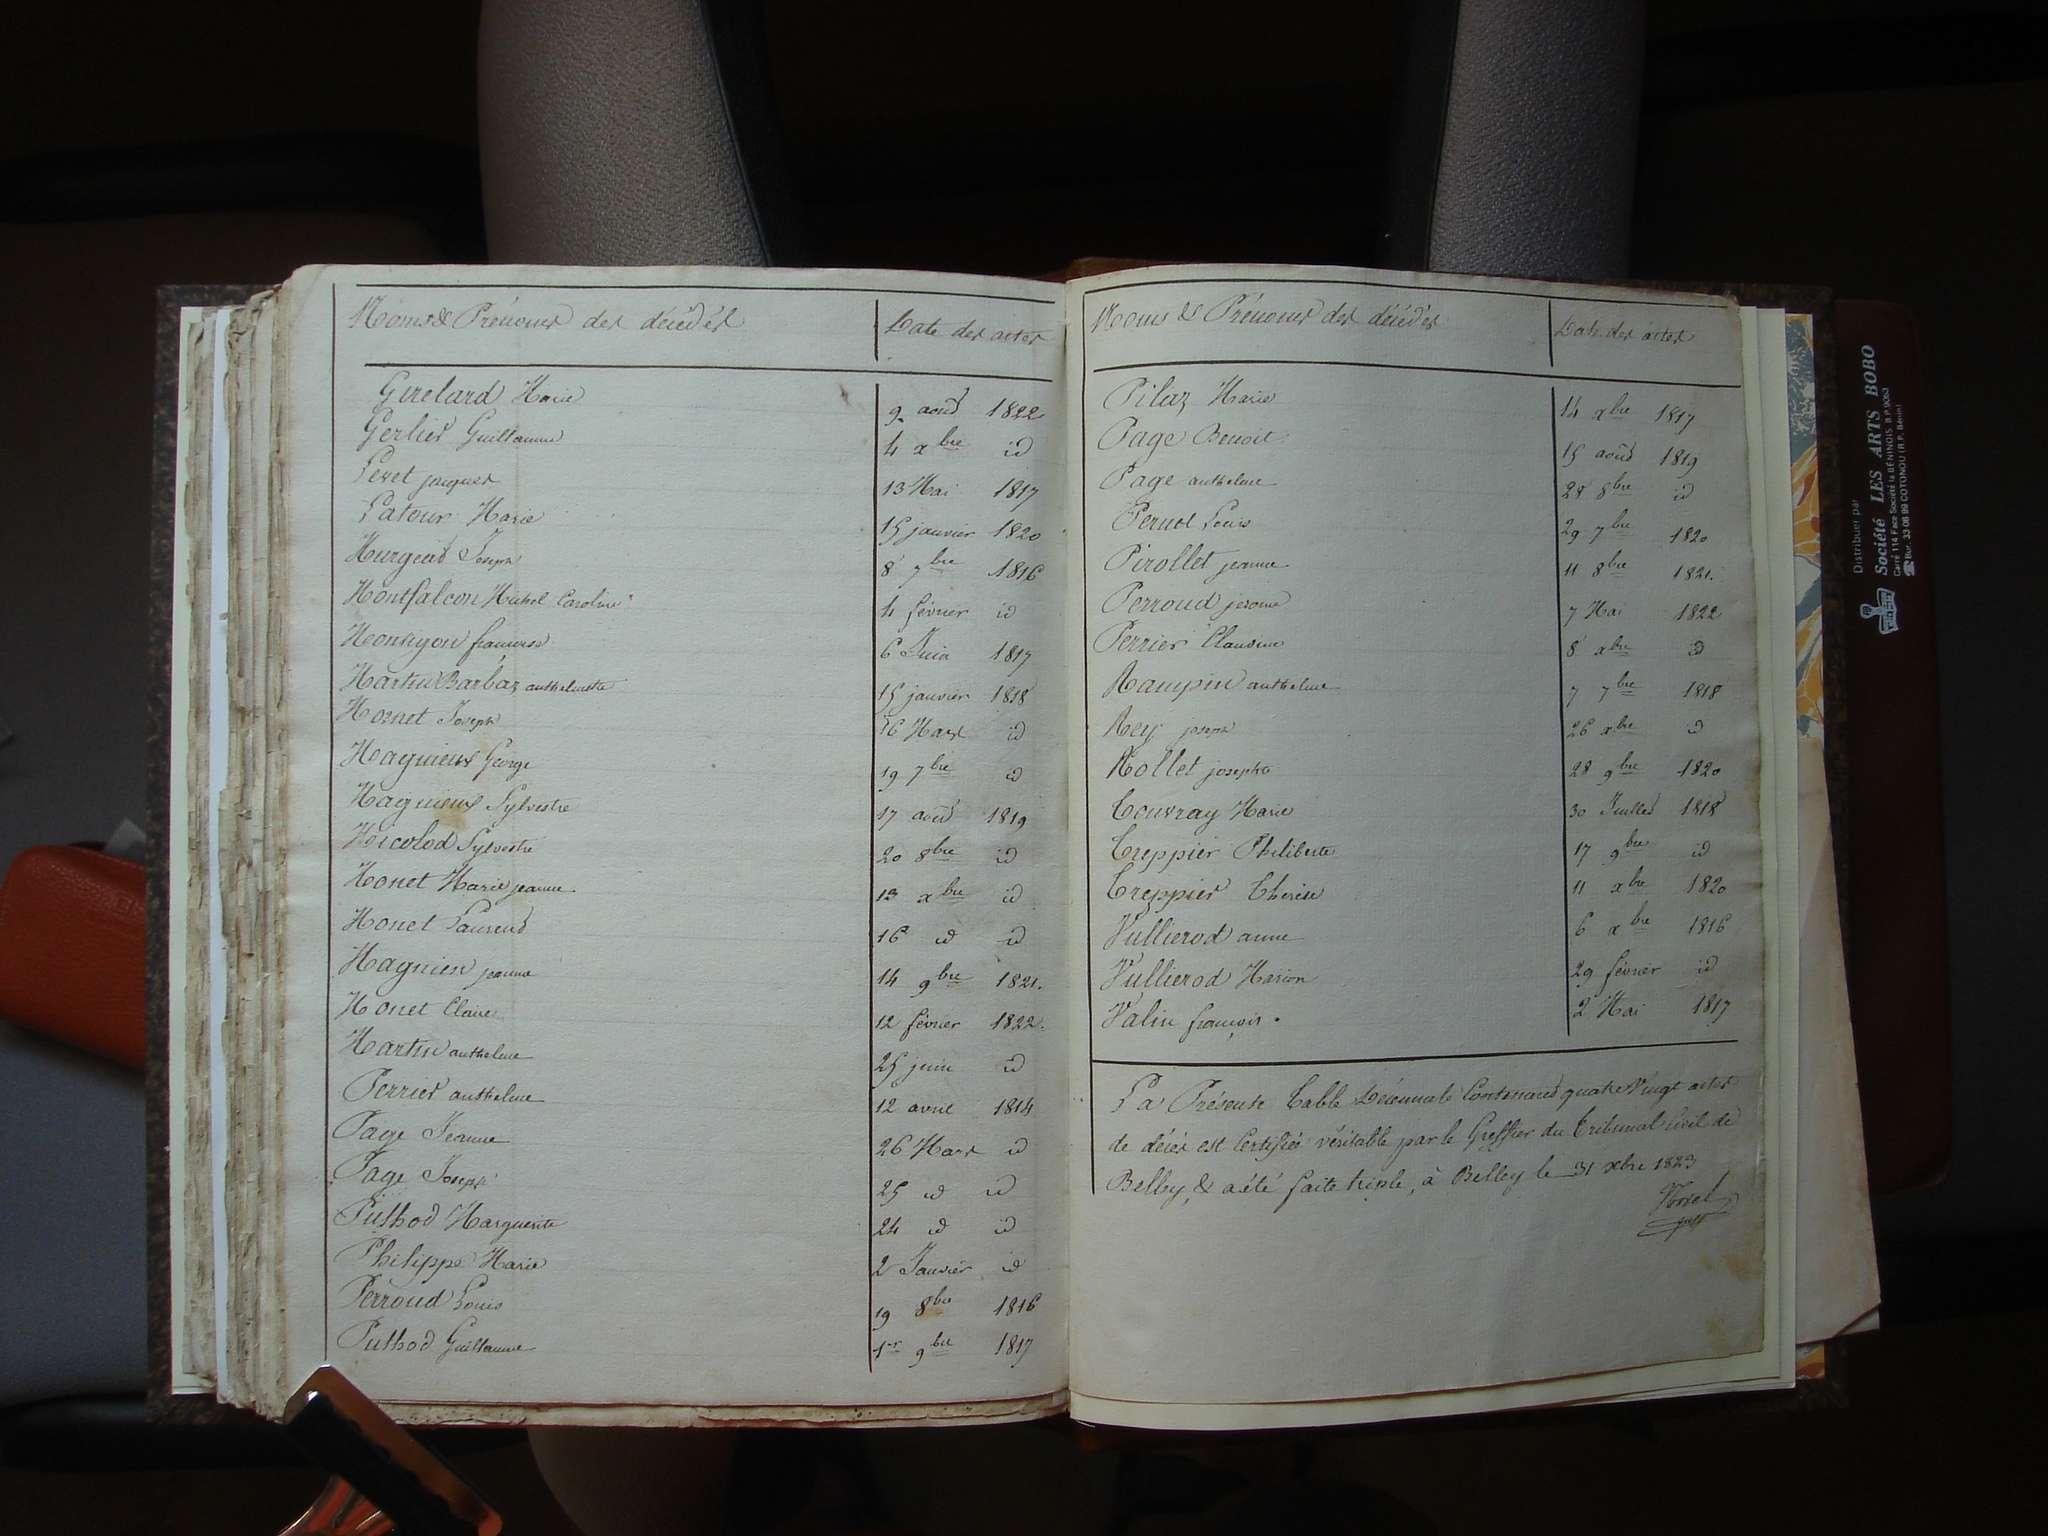 Noms & Prénoms des décédés
Date des actes
Girelard Marie 9 aoud 1822
Gerlier Guillaume 4 xbre id
Peret jacques 13 Mai 1817
Latour Marie 15 janvier 1820
Murgeid Joseph 8 7bre 1816
Montfalcon Michel Caroline 4 février id
Monnyon francoise 6 Juin 1817
Martin Barbaz anthelmette 15 janvier 1818
Mornet Joseph 16 Mars id
Magnieux George 19 7bre id
Magnieux Sylvestre 17 aoud 1819
Nicolod Sylvestre 20 8bre id
Monet Marie jeanne 13 xbre id
Monet Laurend 16 id id
Magnien jeanne 14 9bre 1821.
Monet Claire 12 février 1822.
Martin anthelme 25 juin id
Perrier anthelme 12 avril 1814
Page Jeanne 26 Mars id
Page Joseph 25 id id
Puthod Marguerite 24 id id
Philippe Marie 2 Janvier id
Perroud Louis 19 8bre 1816
Puthod Guillaume 1er 9bre 1817
Noms & Prénoms des décédés
Date des actes
Pilaz Marie 14 xbre 1817
Page Benoit 15 aoud 1819
Page anthelme 28 8bre id
Pernod Louis 29 7bre 1820
Pirollet jeanne 11 8bre 1821.
Perroud jerome 7 Mai 1822
Perrier Claudine 8 xbre id
Rampin anthelme 7 7bre 1818
Rey joseph 26 xbre id
Rollet josephte 28 9bre 1820
Touvray Marie 30 Juilled 1818
Treppier Philiberte 17 9bre id
Treppier Therese 11 xbre 1820
Vullierod anne 6 xbre 1816
Vullierod Marion 29 février id
Valin françois. 2 Mai 1817
La Présente Table Décennale Contenand quatre Vingt actes
de décès est Certifiée véritable par le Greffier du Tribunal Civil de
Belley, & a été faite triple, à Belley le 31 xbre 1823
Distribuer par
Société LES ARTS BOBO
Carré 114 Face Société la BÉNINOIS B.P. 9063
☎ Bur. 33 06 99 COTONOU (R.P. Bénin)